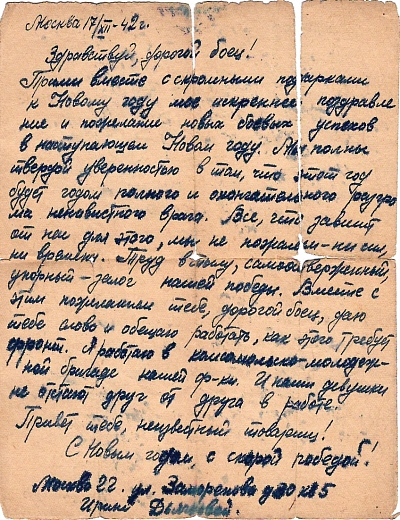 Москва 17/XII-42г.
Здравствуй, дорогой боец!
Прими вместе с скромными подарками
к Новому году мое искреннее поздравле
ние и пожелание новых боевых успехов
в наступающем Новом году. Мы полны
твердой уверенностью в том, что этот год
будет годом полного и окончательного разгро
ма ненавистного врага. Все, что зависит
от нас для этого, мы не пожалеем - ни сил,
ни времени. Труд в тылу, самоотверженный,
упорный - залог нашей победы. Вместе с
этим пожеланием тебе, дорогой боец, даю
тебе слово и обещаю работать, как этого требует
фронт. Я работаю в комсомольско-молодеж-
ной бригаде нашей ф-ки. И наши девушки
не отстают друг от друга в работе.
Привет тебе, неизвестный товарищ!
С Новым годом, с скорой победой!
Москва 22. ул. д 30 кв 5
Ирине